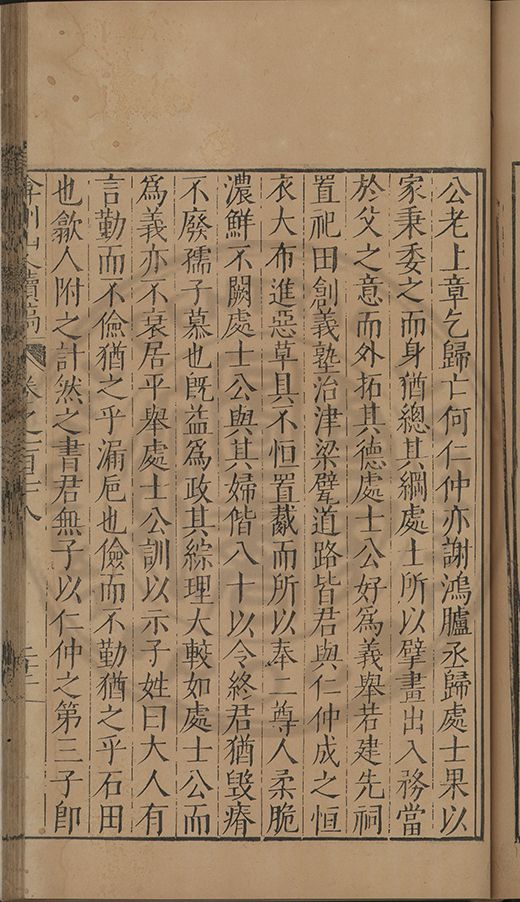 公老上章乞歸亡何仁仲亦謝鴻臚丞歸處士果以
家秉委之而身猶總其綱處士所以擘畫出入務當
於父之意而外拓其德處士公好為義舉若建先祠
置祀田創義塾治津梁甓道路皆君與仁仲成之恒
衣大布進惡草具不恒置胾而所以奉二尊人柔脆
濃鮮不闕處士公與其婦偕八十以令終君猶毀瘠
不廢孺子慕也既益為政其綜理大較如處士公而
為義亦不衰居平舉處士公訓以示子姓曰大人有
言勤而不儉猶之乎漏巵也儉而不勤猶之乎石田
也歙人附之計然之書君無子以仁仲之第三子即
弇州山人續稿 卷之一百十八 二十二